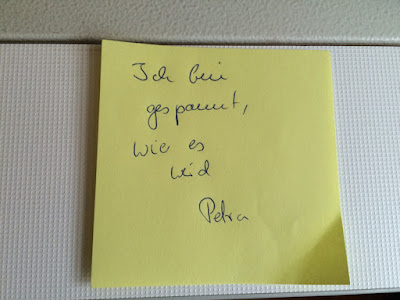 Ich bin
gespannt,
wie es
wird
Petra